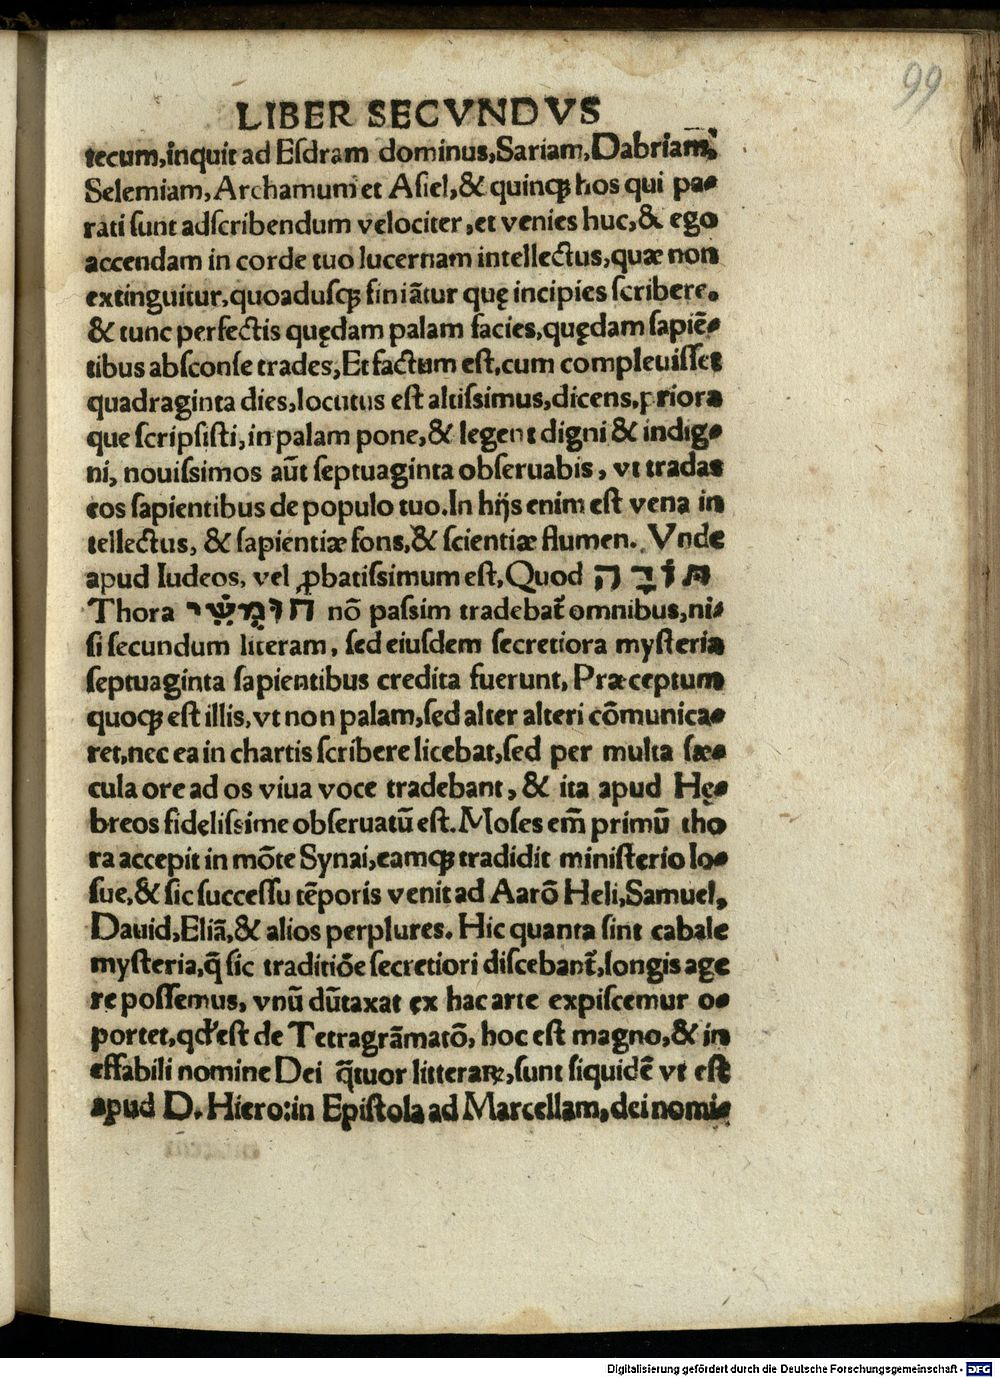 99
LIBER SECVNDVS
tecum, inquit ad Eſdram dominus, Sariam, Dabriam,
Selemiam, Archamum et Aſiel, & quinqꝫ hos qui pa-
rati ſunt adſcribendum velociter, et venies huc, & ego
accendam in corde tuo lucernam intellectus, quæ non
extinguitur, quoaduſqꝫ finiãtur quę incipies ſcribere.
& tunc perfectis quędam palam facies, quędam ſapiẽ-
tibus abſconſe trades, Et factum eſt, cum compleuiſſet
quadraginta dies, locutus eſt altiſsimus, dicens, priora
que ſcripſiſti, in palam pone, & legent digni & indig-
ni, nouiſsimos aũt ſeptuaginta obſeruabis, vt tradas
eos ſapientibus de populo tuo. In hijs enim eſt vena in
tellectus, & ſapientiæ fons, & ſcientiæ flumen. Vnde
apud Iudeos, vel ꝓbatiſsimum eſt, Quod תּוֹרָה
Thora חוּמְשֵׁי nõ paſsim tradebat̃ omnibus, ni-
ſi ſecundum literam, ſed eiuſdem ſecretiora myſteria
ſeptuaginta ſapientibus credita fuerunt, Præceptum
quoqꝫ eſt illis, vt non palam, ſed alter alteri cõmunica-
ret, nec ea in chartis ſcribere licebat, ſed per multa ſæ-
cula ore ad os viua voce tradebant, & ita apud Hę-
breos fideliſsime obſeruatũ eſt. Moſes em̃ primũ tho
ra accepit in mõte Synai, eamqꝫ tradidit miniſterio Io-
ſue, & ſic ſucceſſu tẽporis venit ad Aarõ Heli, Samuel,
Dauid, Eliã, & alios perplures. Hic quanta ſint cabale
myſteria, q̃ ſic traditiõe ſecretiori diſcebant̃, longis age
re poſſemus, vnũ dũtaxat ex hac arte expiſcemur o-
portet, qd' eſt de Tetragrãmatõ, hoc eſt magno, & in
effabili nomine Dei q̃tuor litteraꝝ, ſunt ſiquidẽ vt eſt
apud D. Hiero: in Epiſtola ad Marcellam, dei nomi-
Digitalisierung gefördert durch die Deutsche Forschungsgemeinschaft - DFG